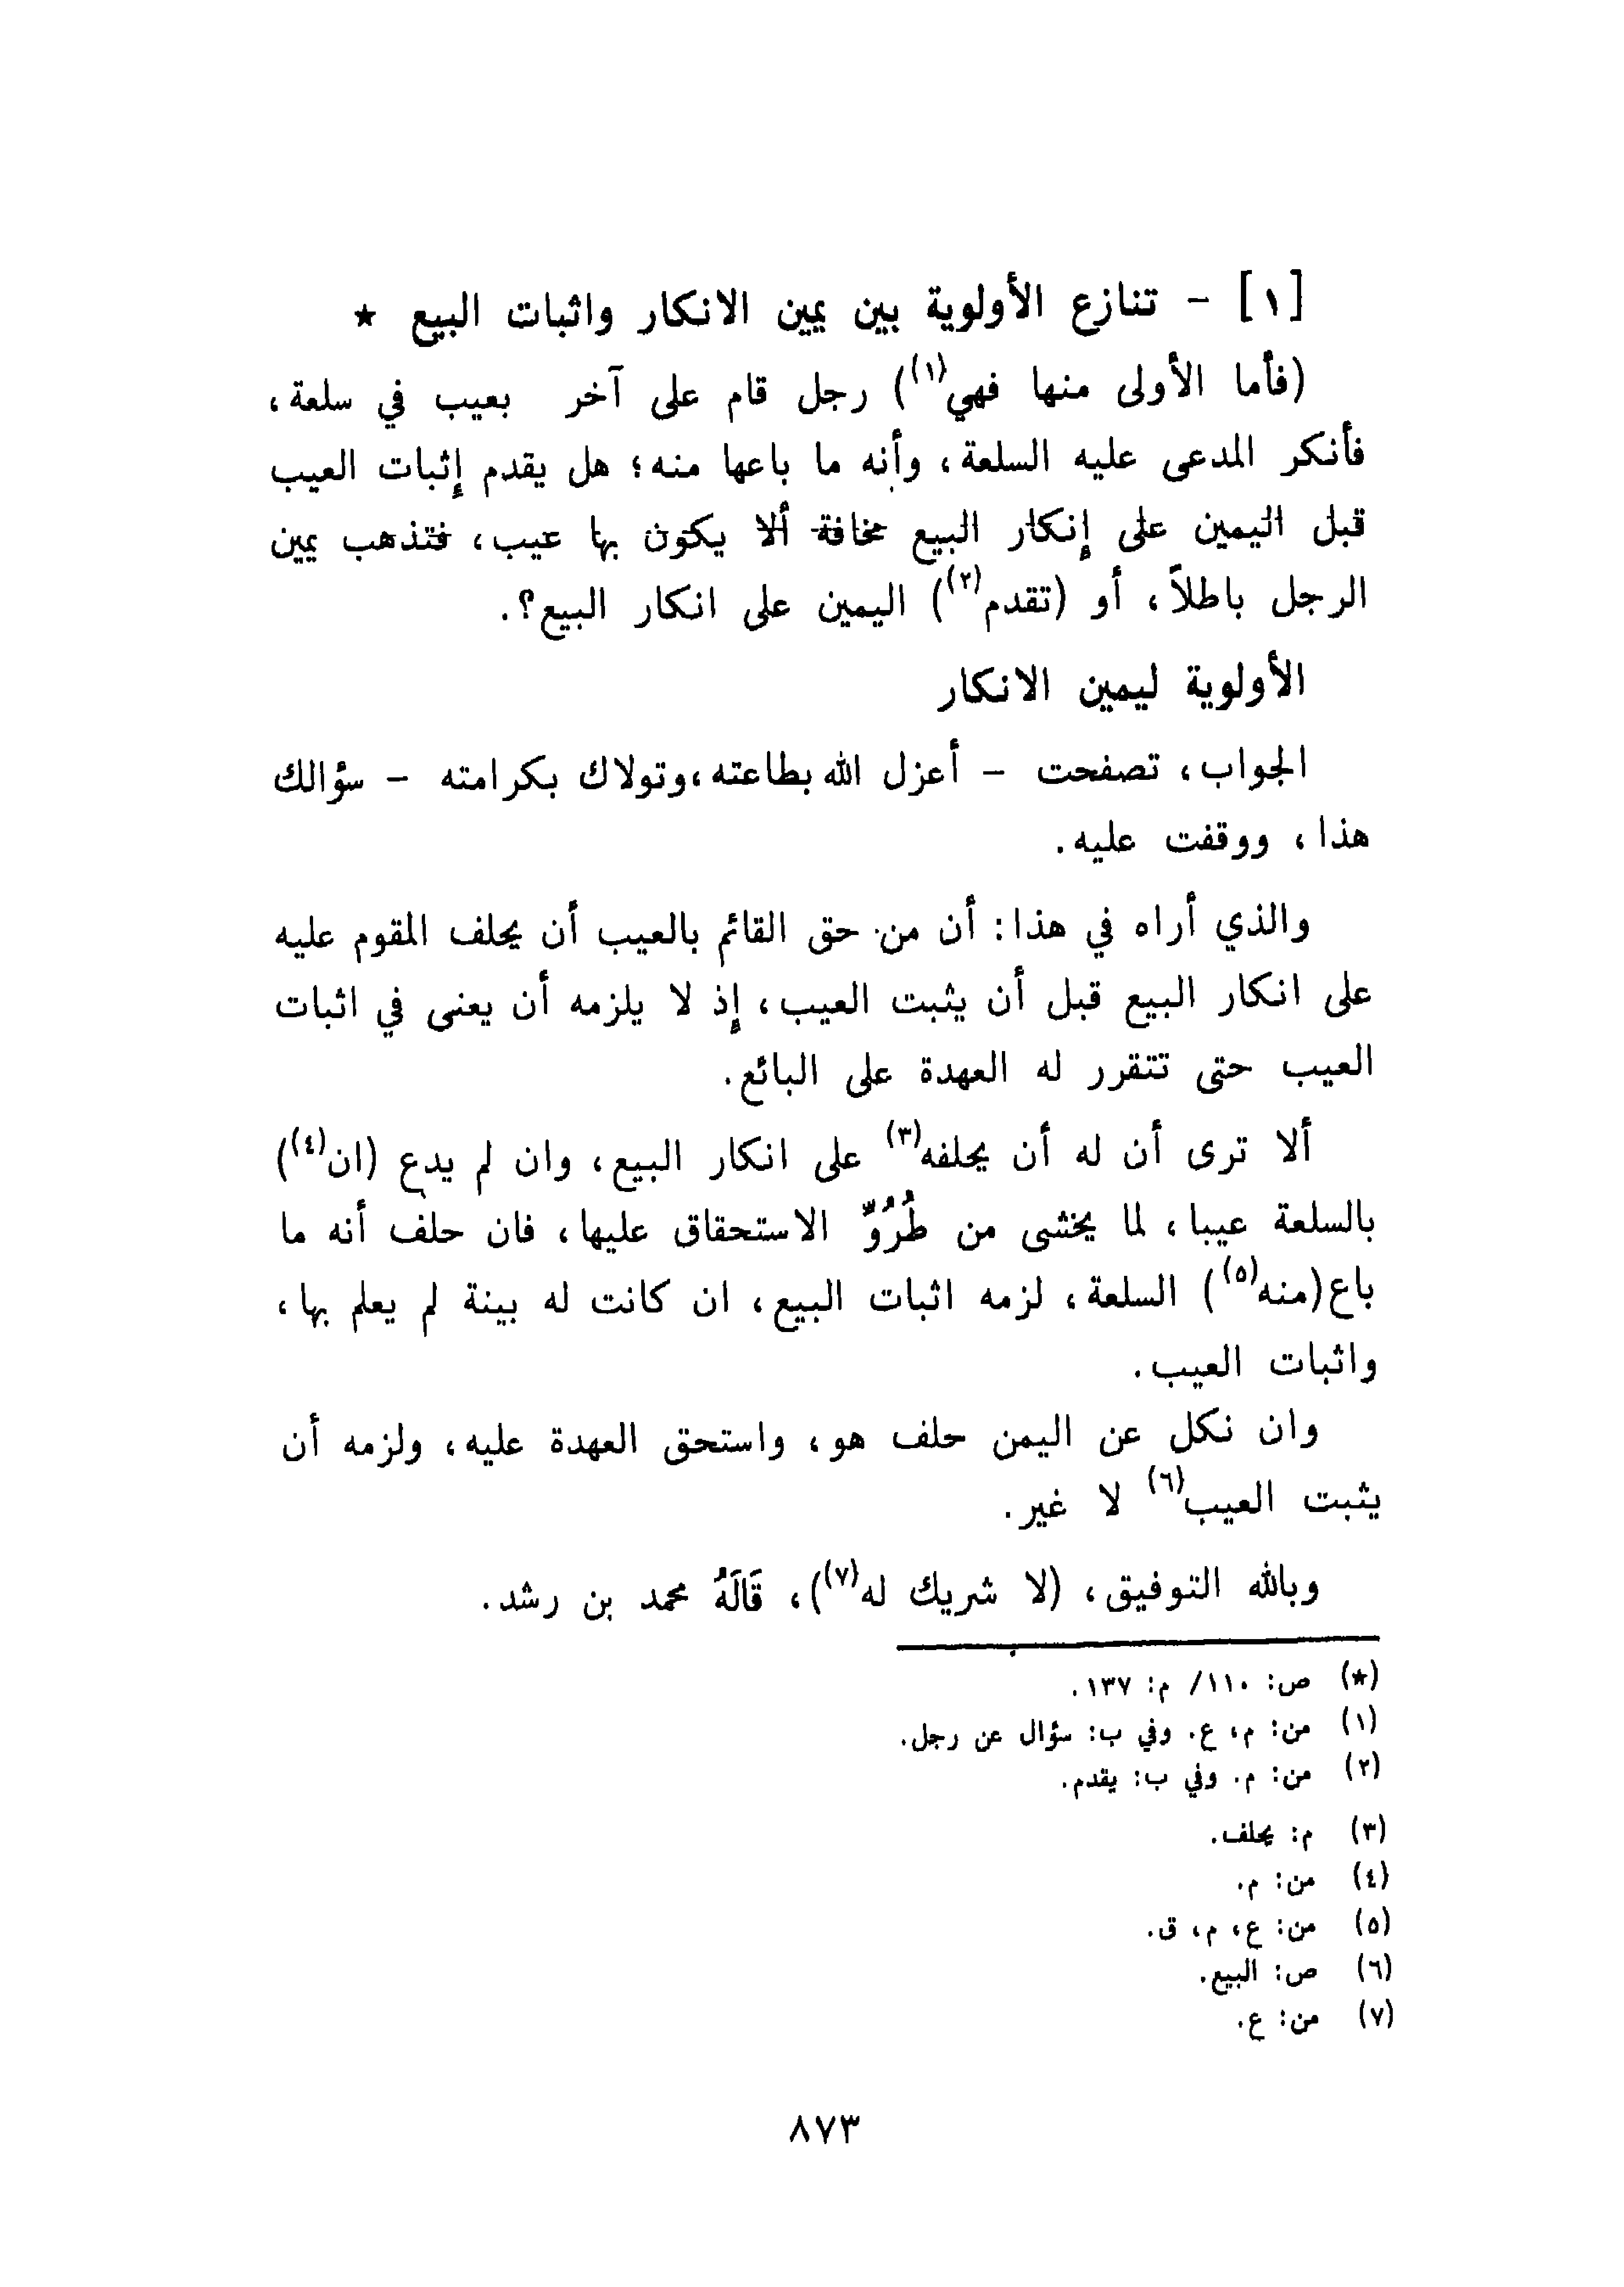 [١] - تنازع الأولوية بين يمين الانكار واثبات البيع *
(فأما الأولى منها فهي(١)) رجل قام على آخر بعيب في سلعة،
فأنكر المدعى عليه السلعة، وأنه ما باعها منه؛ هل يقدم إثبات العيب
قبل اليمين على إنكار البيع مخافة ألا يكون بها عيب، فتذهب يمين
الرجل باطلاً، أو (تقدم(٢)) اليمين على انكار البيع؟.
الأولوية ليمين الانكار
الجواب، تصفحت - أعزل الله بطاعته، وتولاك بكرامته - سؤالك
هذا، ووقفت عليه.
والذي أراه في هذا: أن من حق القائم بالعيب أن يحلف المقوم عليه
على انكار البيع قبل أن يثبت العيب، إذ لا يلزمه أن يعنى في اثبات
العيب حتى تتقرر له العهدة على البائع.
ألا ترى أن له أن يحلفه(٣) على انكار البيع، وان لم يدع (ان(٤))
بالسلعة عيبا، لما يخشى من طُرُوِّ الاستحقاق عليها، فان حلف أنه ما
باع (منه(٥)) السلعة، لزمه اثبات البيع، ان كانت له بينة لم يعلم بها،
واثبات العيب.
وان نكل عن اليمن حلف هو، واستحق العهدة عليه، ولزمه أن
يثبت العيب(٦) لا غير.
وبالله التوفيق، (لا شريك له(٧))، قَالَهُ محمد بن رشد.
(*) ص: ١١٠/ م: ١٣٧.
(١) من: م، ع. وفي ب: سؤال عن رجل.
(٢) من: م. وفي ب: يقدم.
(٣) م: يحلف.
(٤) من: م.
(٥) من: ع، م، ق.
(٦) ص: البيع.
(٧) من: ع.
٨٧٣